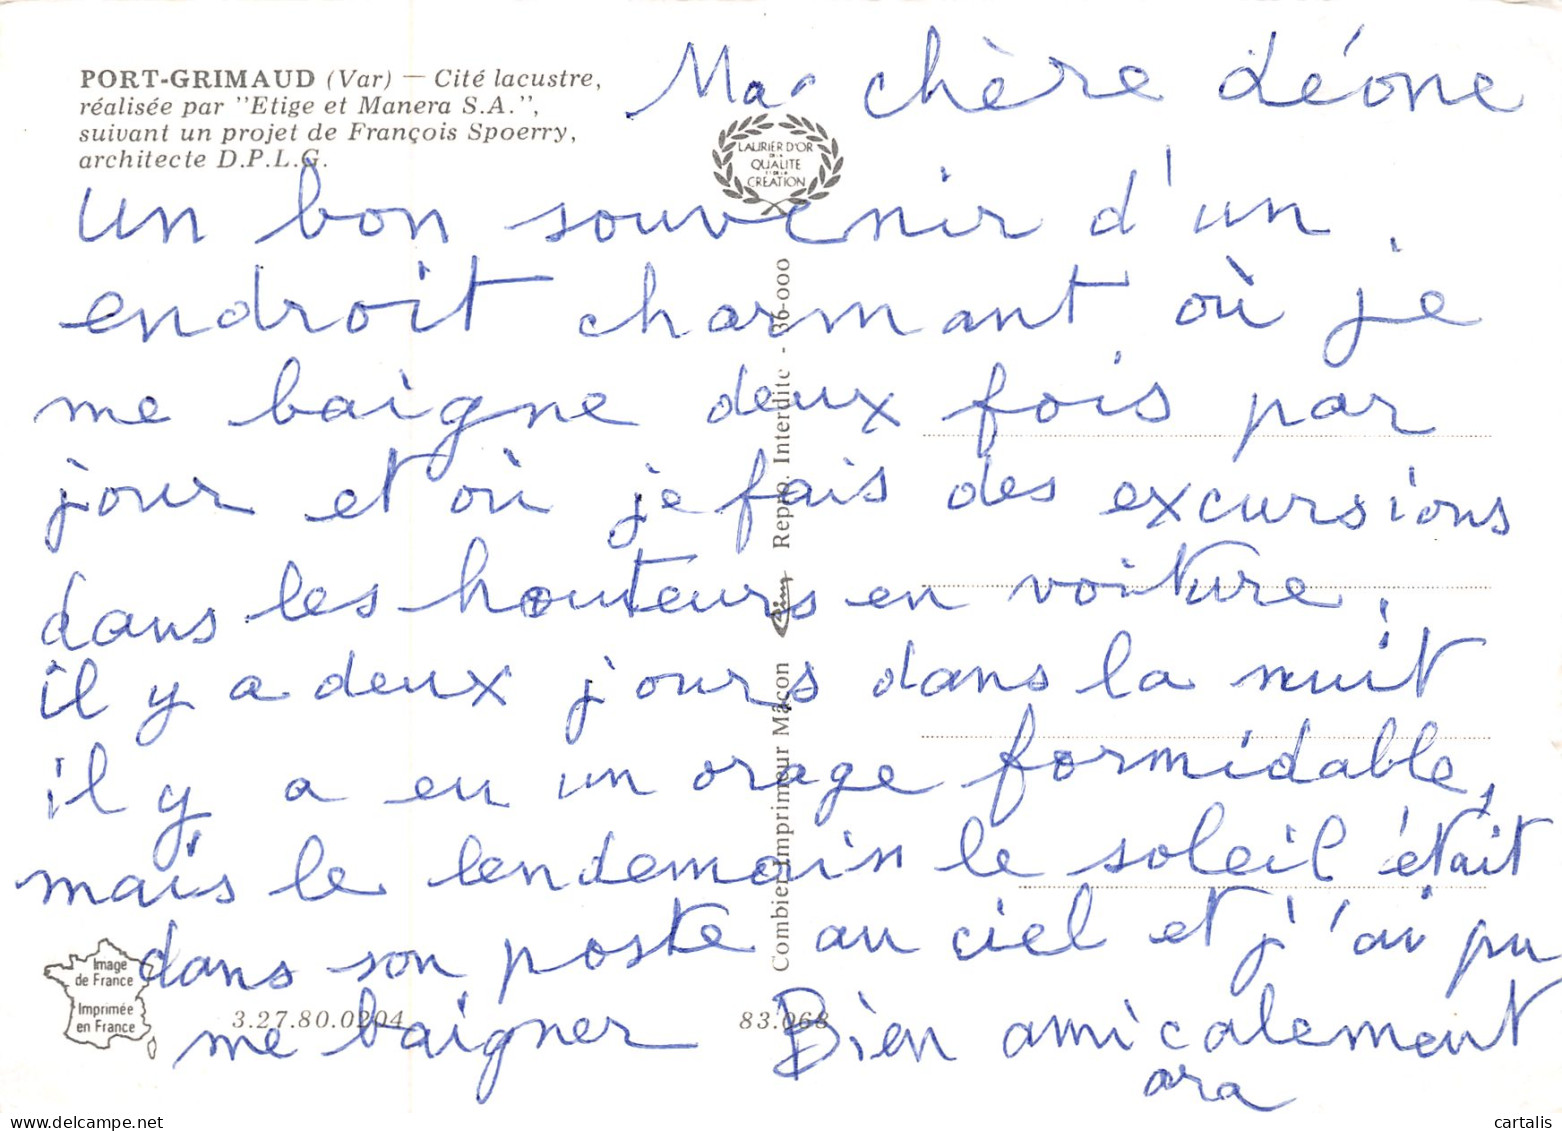 PORT-GRIMAUD (Var) — Cité lacustre,
réalisée par "Etige et Manera S.A.",
suivant un projet de François Spoerry,
architecte D.P.L.G.
LAURIER D'OR
DE LA
QUALITE
ET DE LA
CREATION
Ma chère Léone
un bon souvenir d'un
endroit charmant où je
me baigne deux fois par
jour et où je fais des excursions
dans les hauteurs en voiture.
il y a deux jours dans la nuit
il y a eu un orage formidable,
mais le lendemain le soleil était
dans son poste au ciel et j'ai pu
me baigner Bien amicalement
ara
Combier Imprimeur Mâcon Cim Repro. Interdite - 36-000
Image
de France
Imprimée
en France
3.27.80.0204
83.068
delcampe.net
cartalis